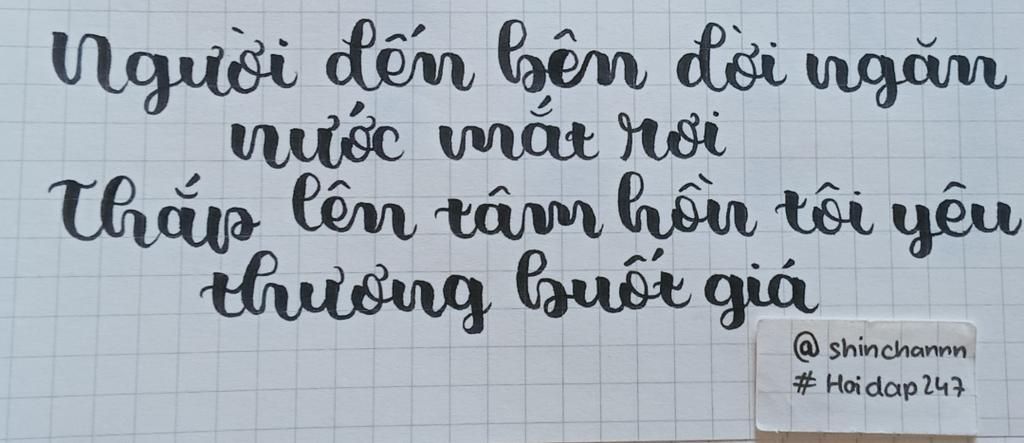 Người đến bên đời ngăn
nước mắt rơi
Thắp lên tâm hồn tôi yêu
thương buốt giá
@ shinchannn
# Hoidap247